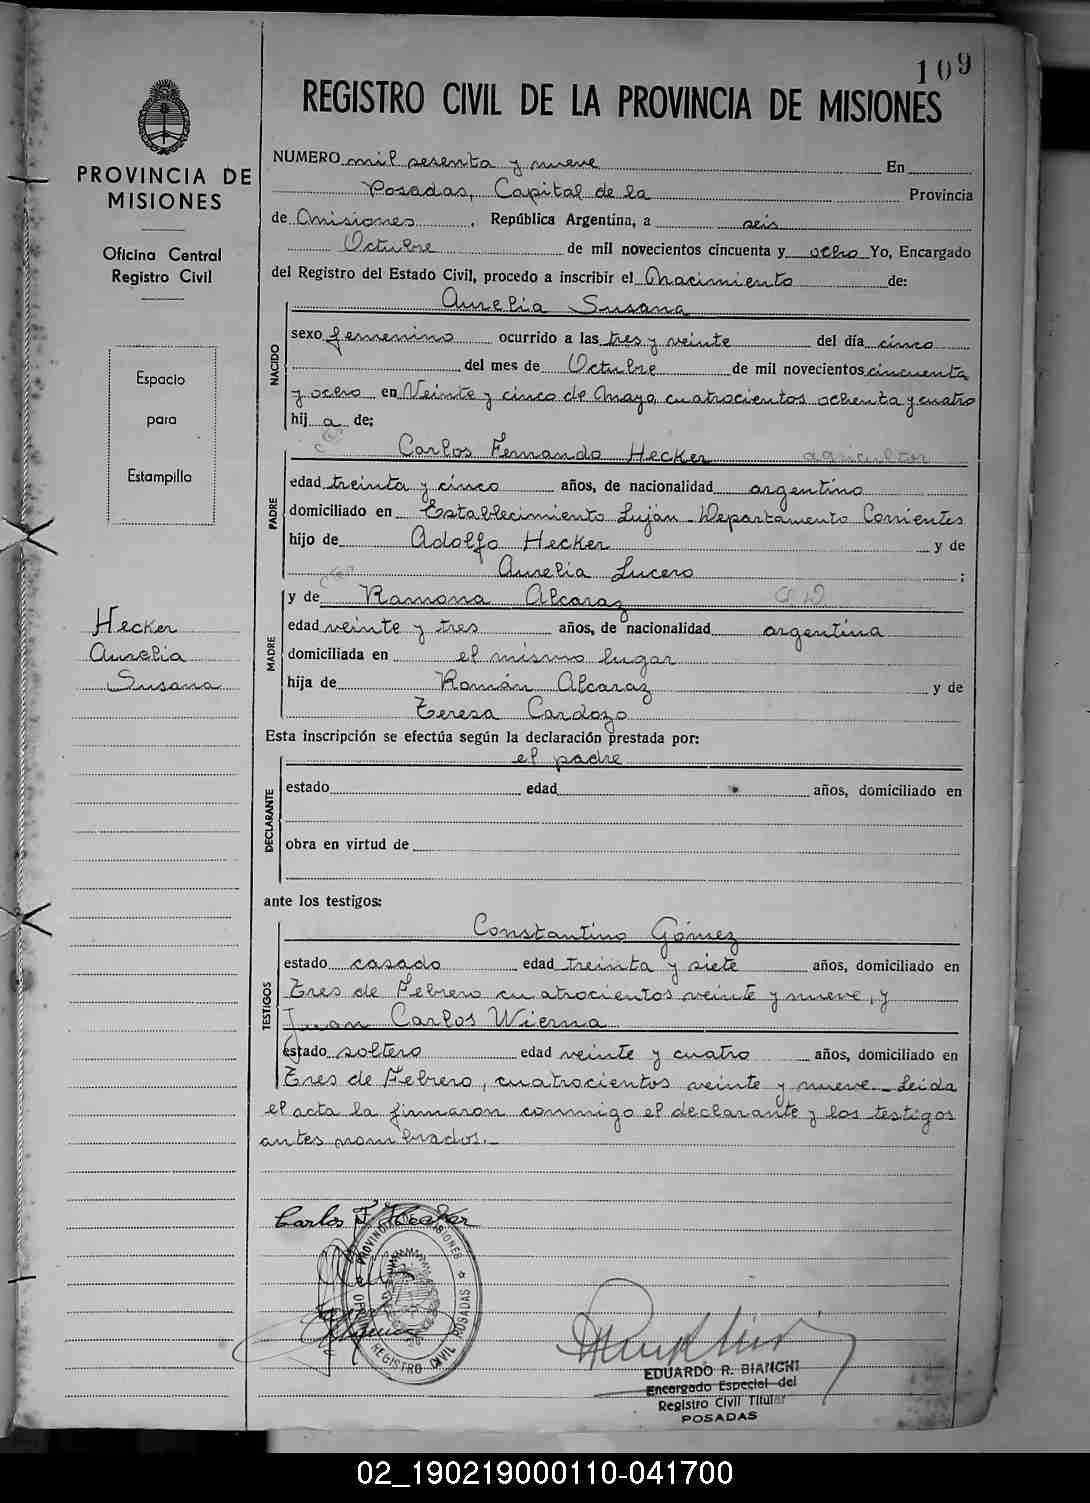 109
REGISTRO CIVIL DE LA PROVINCIA DE MISIONES
PROVINCIA DE
MISIONES
Oficina Central
Registro Civil
Espacio
para
Estampilla
Hecker
Aurelia
Susana
NUMERO mil sesenta y nueve En
Posadas, Capital de la Provincia
de Misiones, República Argentina, a seis
Octubre de mil novecientos cincuenta y ocho Yo, Encargado
del Registro del Estado Civil, procedo a inscribir el Nacimiento de:
NACIDO
Aurelia Susana
sexo femenino ocurrido a las tres y veinte del día cinco
del mes de Octubre de mil novecientos cincuenta
y ocho en Veinte y cinco de Mayo cuatrocientos ochenta y cuatro
hij a de:
PADRE
Carlos Fernando Hecker agricultor
edad treinta y cinco años, de nacionalidad argentino
domiciliado en Establecimiento Luján - Departamento Corrientes
hijo de Adolfo Hecker y de
Aurelia Lucero ;
MADRE
y de Ramona Alcaraz
edad veinte y tres años, de nacionalidad argentina
domiciliada en el mismo lugar
hija de Román Alcaraz y de
Teresa Cardozo
Esta inscripción se efectúa según la declaración prestada por:
DECLARANTE
el padre
estado edad años, domiciliado en
obra en virtud de
ante los testigos:
TESTIGOS
Constantino Gómez
estado casado edad treinta y siete años, domiciliado en
Tres de Febrero cuatrocientos veinte y nueve, y
Juan Carlos Wierna
estado soltero edad veinte y cuatro años, domiciliado en
Tres de Febrero, cuatrocientos veinte y nueve.- Leída
el acta la firmaron conmigo el declarante y los testigos
antes nombrados.-
Carlos F. Hecker
PROVINCIA DE MISIONES
REGISTRO CIVIL POSADAS
EDUARDO R. BIANCHI
Encargado Especial del
Registro Civil Titular
POSADAS
02_190219000110-041700